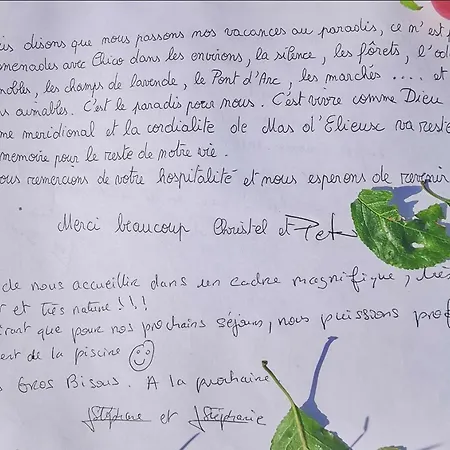 is disons que nous passons nos vacances au paradis, ce n'est p
omenades avec Chico dans les environs, la silence, les fôrets, l'od
nobles, les champs de lavende, le Pont d'Arc, les marchés .... et
s aimables. C'est le paradis pour nous. C'est vivre comme Dieu
me meridional et la cordialite de Mas d'Elieux va reste
memoire pour le reste de notre vie.
ous remercions de votre hospitalité et nous esperons de revenir
Merci beaucoup Christel et Pet
de nous accueillir dans un cadre magnifique, trés
r et trés nature !!!
rant que pour nos prochains séjours, nous puissions prof
ent de la piscine
s Gros Bisous. A la prochaine
Stéphane et Stéphanie